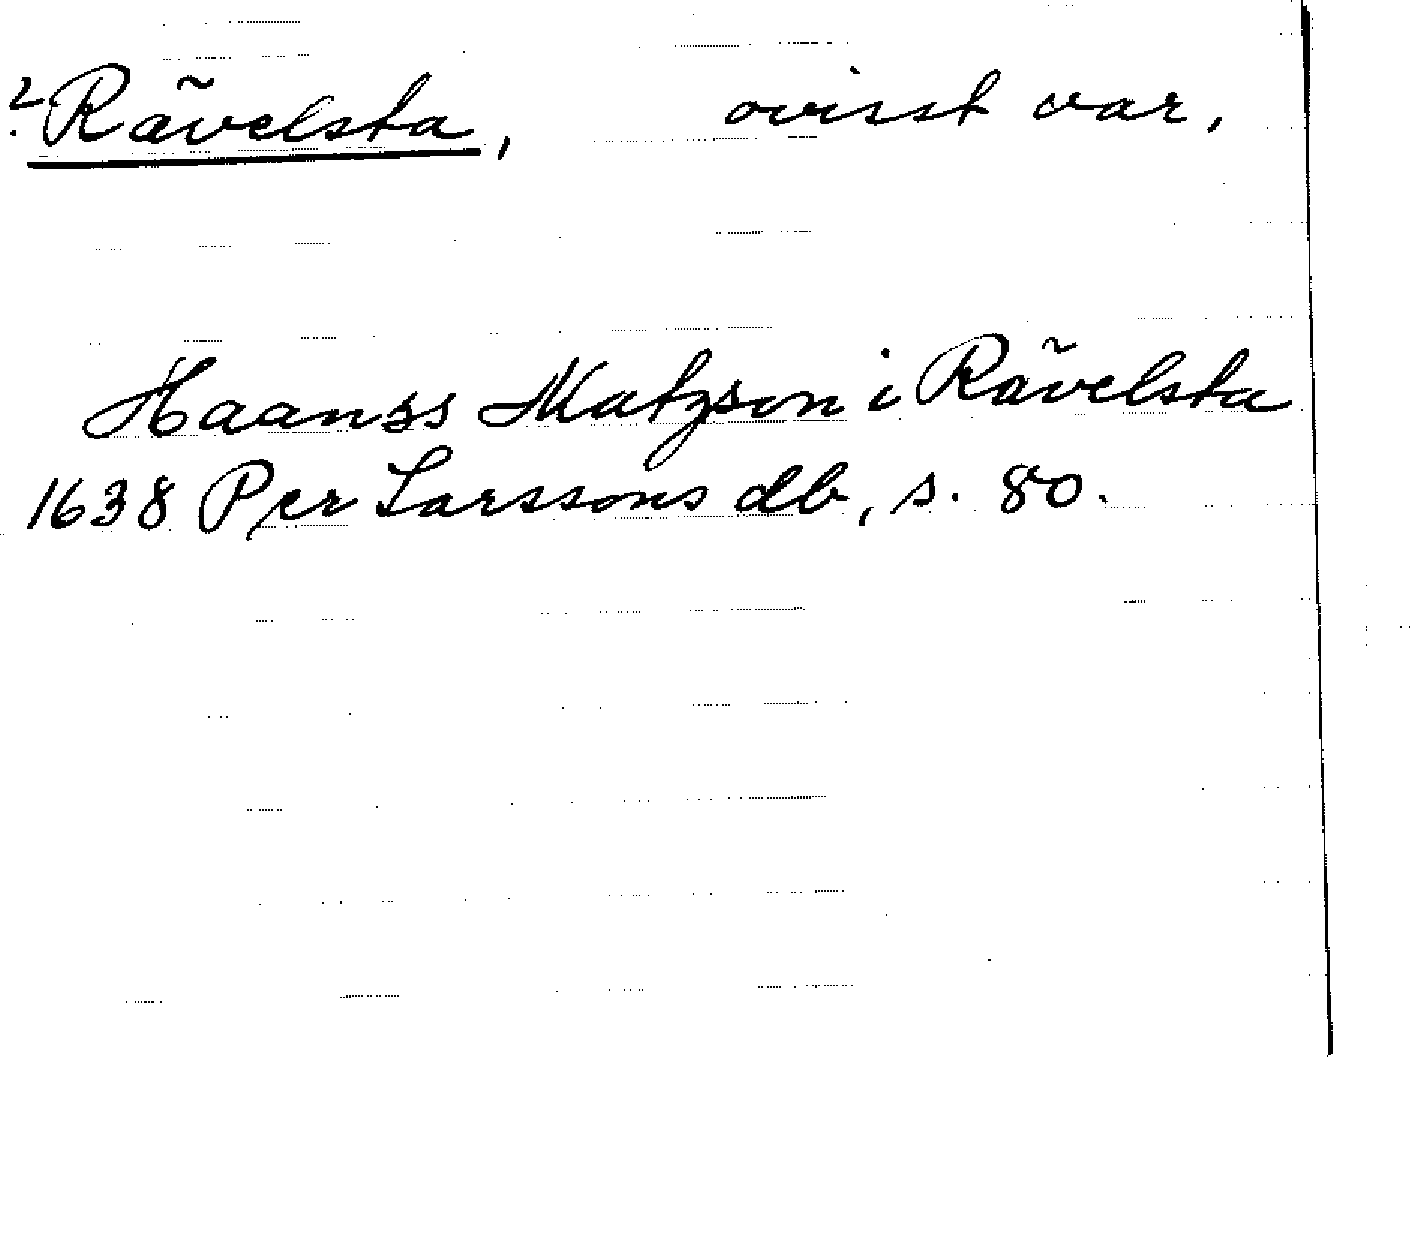 ? Rävelsta, ovisst var,
Haanss Matzson i Rävelsta
1638 Per Larssons db, s. 80.